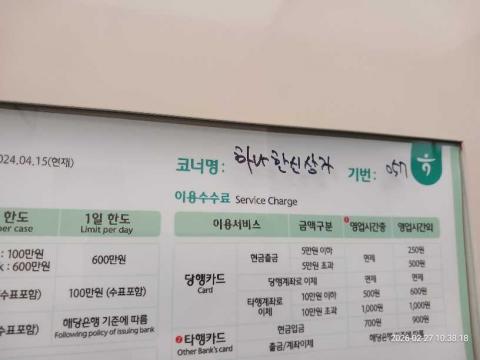 024.04.15(현재)
코너명: 하나한신상가 기번: 057
이용수수료 Service Charge
한도
per case
1일 한도
Limit per day
: 100만원
k : 600만원
600만원
수표포함)
100만원 (수표포함)
수표포함)
해당은행 기준에 따름
Following policy of issuing bank
이용서비스 금액구분 영업시간중 영업시간외
당행카드
Card
현금출금
5만원 이하 면제 250원
5만원 초과 500원
당행계좌로 이체 면제 면제
타행계좌로 이체
10만원 이하 500원 600원
10만원 초과 1,000원 1,000원
❷타행카드
Other Bank's card
현금입금 700원 900원
출금/계좌이체 해당은행 기준에 따름
2026-02-27 10:38:18